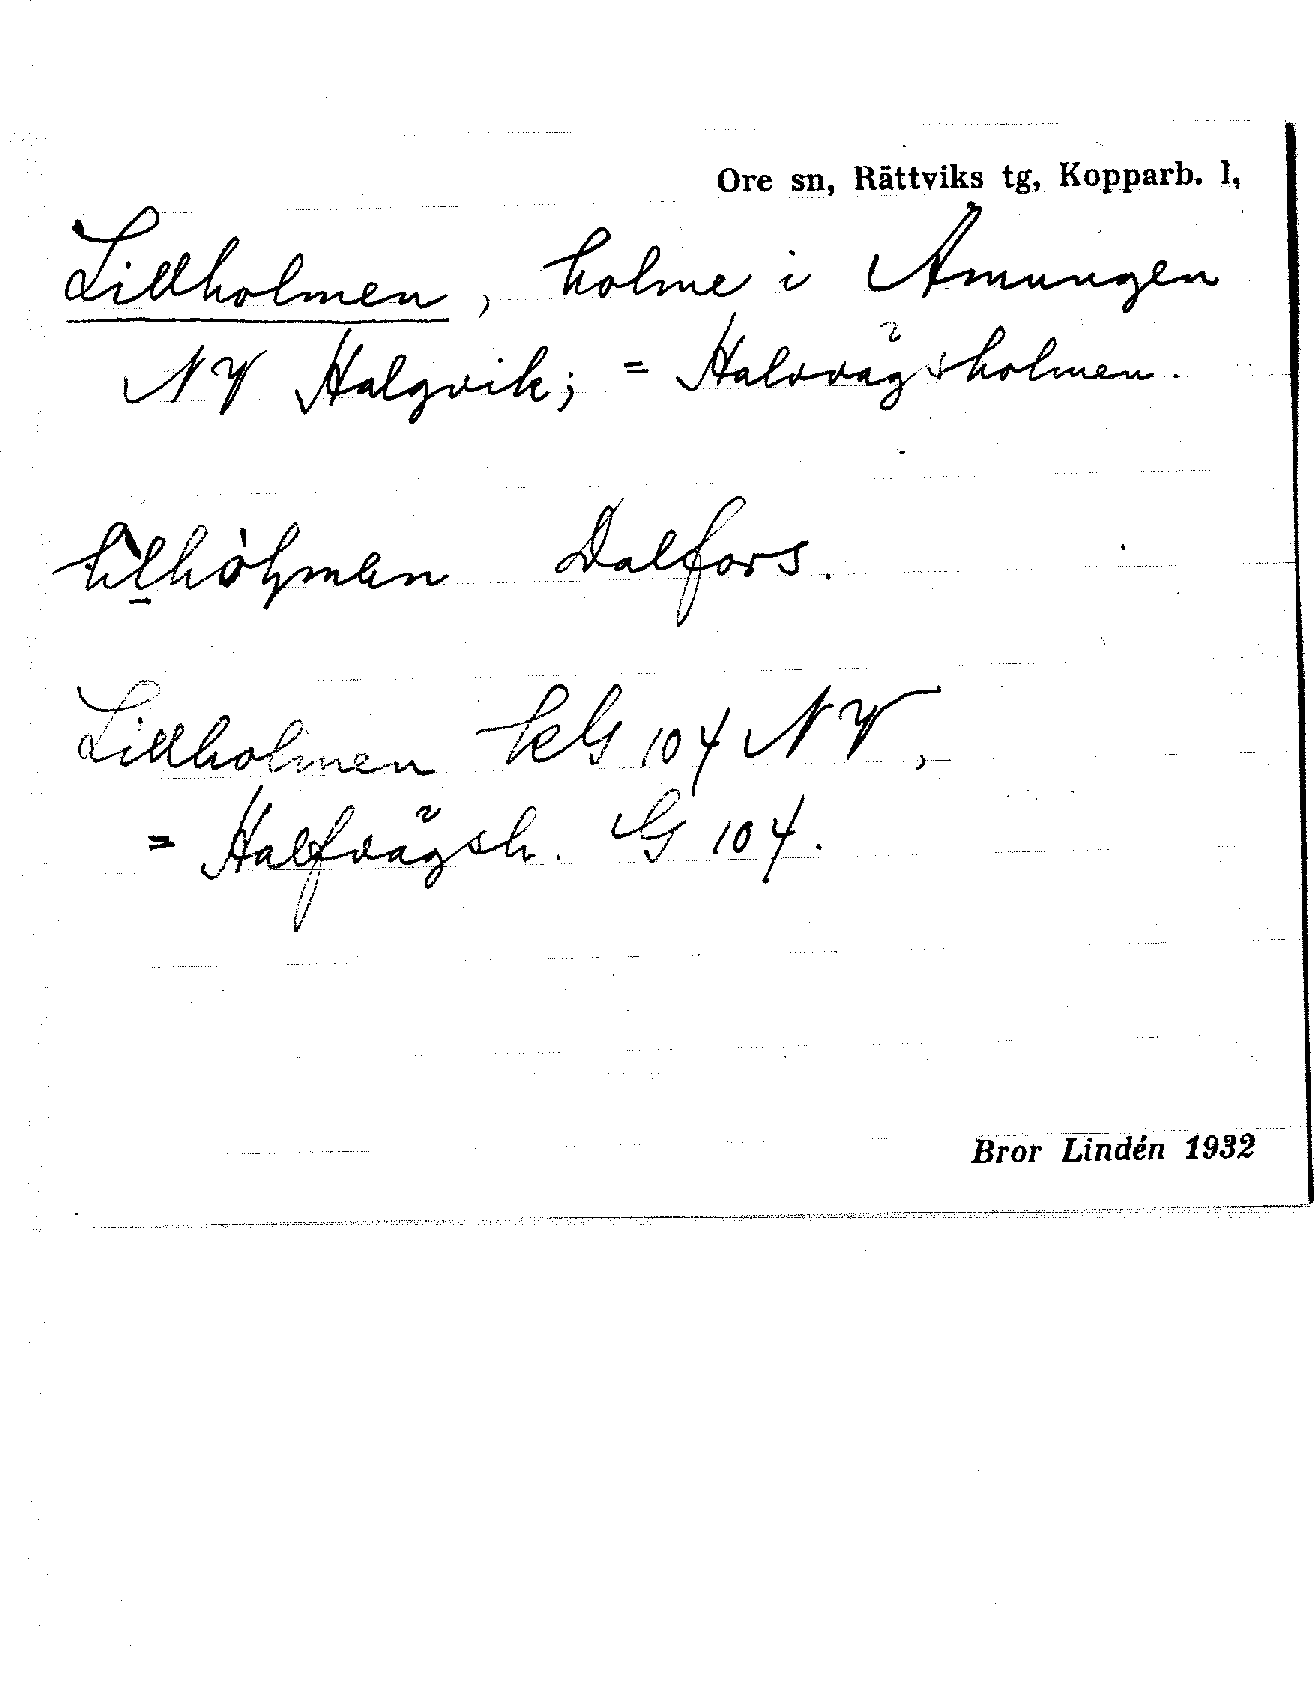 Ore sn, Rättviks tg, Kopparb. l,
Lillholmen, holme i Amungen
NV Halgvik; = Halvvågsholmen.
Dalfors.
Lillholmen kG 104 NV,
= Halfvågsh. G 104.
Bror Lindén 1932